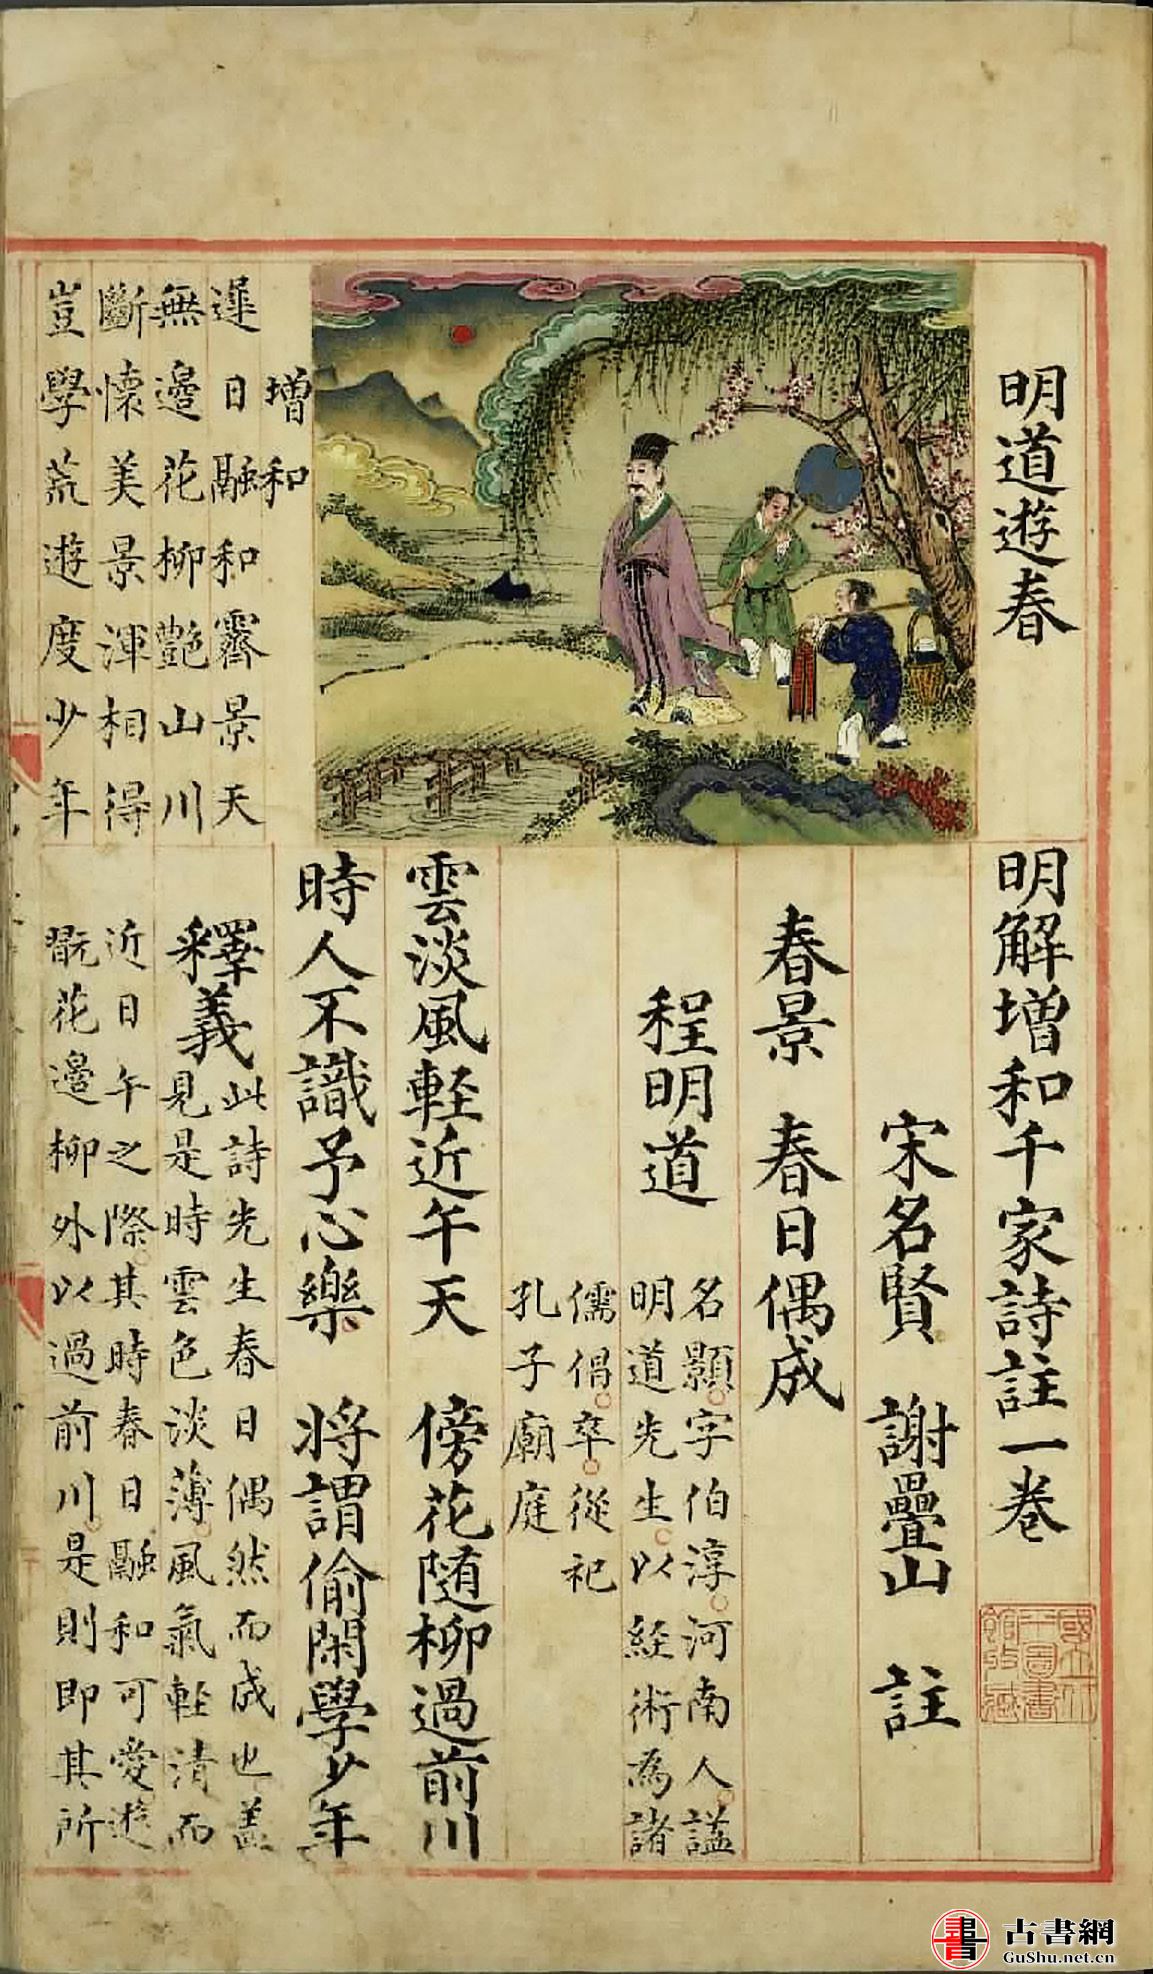 明道遊春
明解增和千家詩註一卷
宋名賢 謝疊山 註
春景 春日偶成
程明道
名顥字伯淳河南人謚
明道先生以経術為諸
儒倡卒從祀
孔子廟庭
雲淡風軽近午天 傍花随柳過前川
時人不識予心樂 将謂偷閑學少年
增和
遲日融和霽景天
無邊花柳艷山川
斷懐美景渾相得
豈學荒遊度少年
釋義
此詩先生春日偶然而成也盖
見是時雲色淡薄風氣軽清而
近日午之際其時春日融和可愛遊
翫花邊柳外以過前川是則即其所
國立北
平圖書
館收藏
古書網
GuShu.net.cn